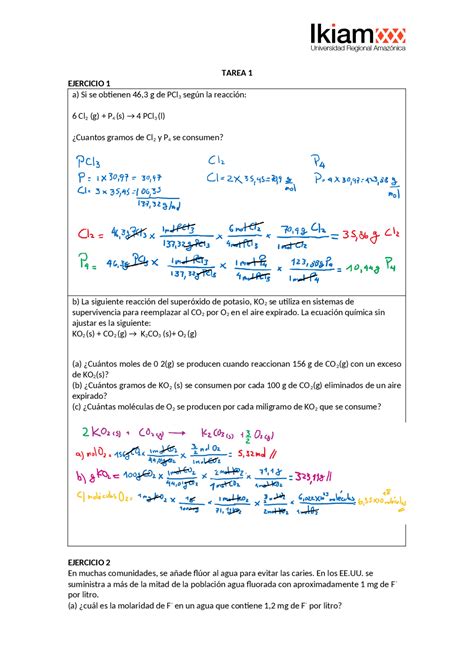 Ikiam
Universidad Regional Amazónica
TAREA 1
EJERCICIO 1
a) Si se obtienen 46,3 g de PCl₃ según la reacción:
6 Cl₂ (g) + P₄ (s) → 4 PCl₃ (l)
¿Cuantos gramos de Cl₂ y P₄ se consumen?
PCl₃ Cl₂ P₄
P = 1 x 30,97 = 30,97 Cl = 2 x 35,45 = P = 4 x 30,97 =
Cl = 3 x 35,45 =
137,32 g/mol
Cl₂ = 46,3g PCl₃ x 1mol PCl₃ / 137,32g PCl₃ x 6mol Cl₂ / 4mol PCl₃ x 70,9g Cl₂ / 1mol Cl₂ = 35,86g Cl₂
P₄ = 46,3g PCl₃ x 1mol PCl₃ / 137,32g PCl₃ x 1mol P₄ / 4mol PCl₃ x 123,88g P₄ / 1mol P₄ = 10,44g P₄
b) La siguiente reacción del superóxido de potasio, KO₂ se utiliza en sistemas de
supervivencia para reemplazar al CO₂ por O₂ en el aire expirado. La ecuación química sin
ajustar es la siguiente:
KO₂ (s) + CO₂ (g) → K₂CO₃ (s)+ O₂ (g)
(a) ¿Cuántos moles de 0 2(g) se producen cuando reaccionan 156 g de CO₂(g) con un exceso
de KO₂(s)?
(b) ¿Cuántos gramos de KO₂ (s) se consumen por cada 100 g de CO₂(g) eliminados de un aire
expirado?
(c) ¿Cuátas moléculas de O₂ se producen por cada miligramo de KO₂ que se consume?
2 KO₂ (s) + CO₂ (g) → K₂CO₃ (s) + 3/2 O₂ (g)
a) mol O₂ = 156g CO₂ x 1mol CO₂ / 44,01g CO₂ x 3/2 mol O₂ / 1mol CO₂ = 5,32mol //
b) g KO₂ = 100g CO₂ x 1mol CO₂ / 44,01g CO₂ x 2mol KO₂ / 1mol CO₂ x 71,1g / 1mol KO₂ = 323,11g //
c) moléculas O₂ =
EJERCICIO 2
En muchas comunidades, se añade flúor al agua para evitar las caries. En los EE.UU. se
suministra a más de la mitad de la población agua fluorada con aproximadamente 1 mg de F⁻
por litro.
(a) ¿cuál es la molaridad de F⁻ en un agua que contiene 1,2 mg de F⁻ por litro?